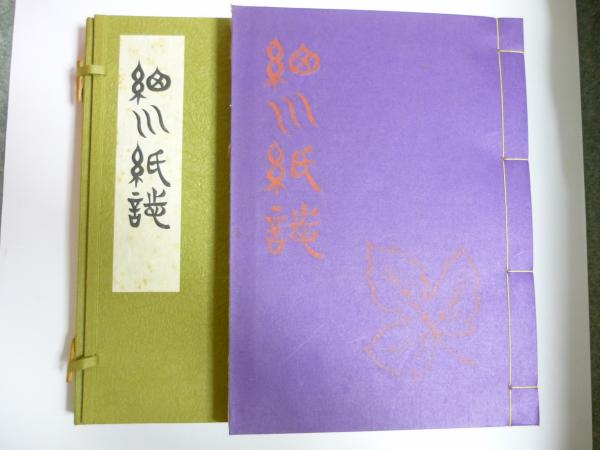 細川紙誌
細川紙誌